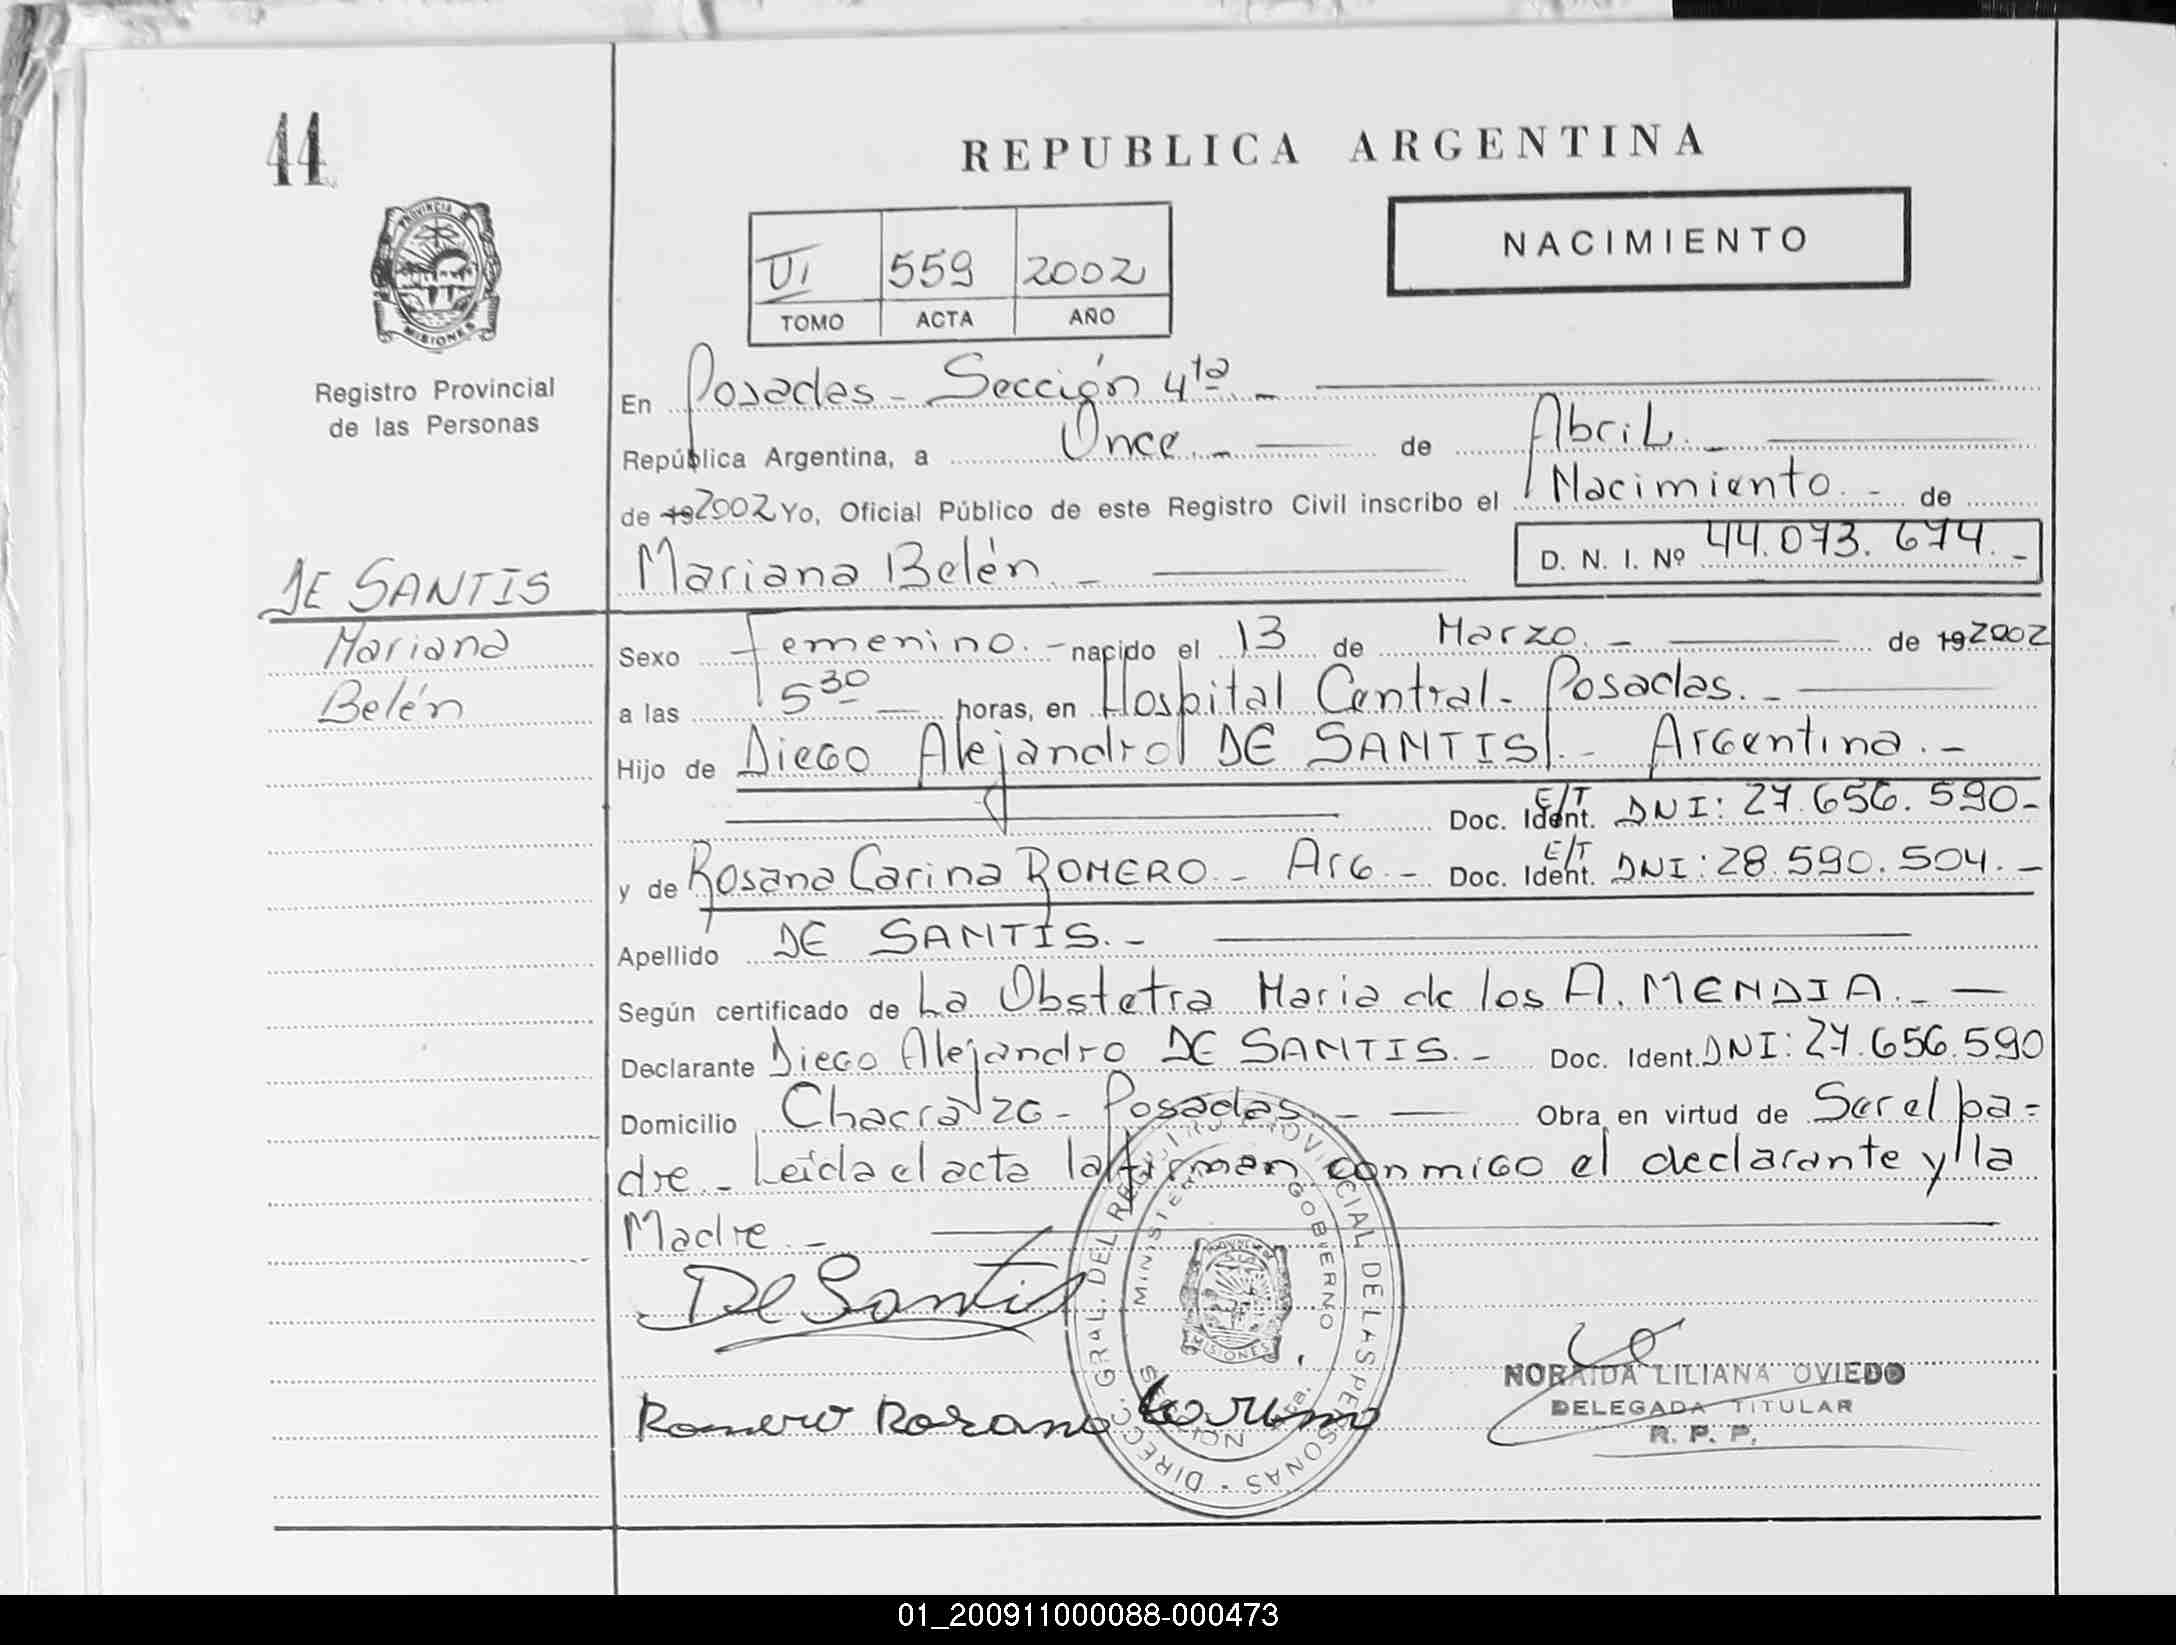 44
REPUBLICA ARGENTINA
PROVINCIA DE
MISIONES
Registro Provincial
de las Personas
VI 559 2002
TOMO ACTA AÑO
NACIMIENTO
En Posadas - Sección 4ta. -
República Argentina, a Once. - de Abril. -
de 19 2002 Yo, Oficial Público de este Registro Civil inscribo el Nacimiento. - de
Mariana Belén. - D. N. I. Nº 44.073.674. -
DE SANTIS
Mariana
Belén
Sexo Femenino. - nacido el 13 de Marzo. - de 19 2002
a las 5 30 horas, en Hospital Central - Posadas. -
Hijo de Diego Alejandro DE SANTIS. - Argentina. -
Doc. Ident. E/T DNI: 27.656.590-
y de Rosana Carina ROMERO. - Arg. - Doc. Ident. E/T DNI: 28.590.504. -
Apellido DE SANTIS. -
Según certificado de La Obstetra Maria de los A. MENDIA. -
Declarante Diego Alejandro DE SANTIS. - Doc. Ident. DNI: 27.656.590
Domicilio Chacra 26 - Posadas. - Obra en virtud de Ser el pa=
dre. - Leída el acta la firman conmigo el declarante y la
Madre. -
De Santis
Romero Rosana Carina
DIRECC. GRAL. DEL REGISTRO PROVINCIAL DE LAS PERSONAS
MINISTERIO GOBIERNO
MISIONES
SECCION 4ta.
NORAIDA LILIANA OVIEDO
DELEGADA TITULAR
R. P. P.
01_200911000088-000473